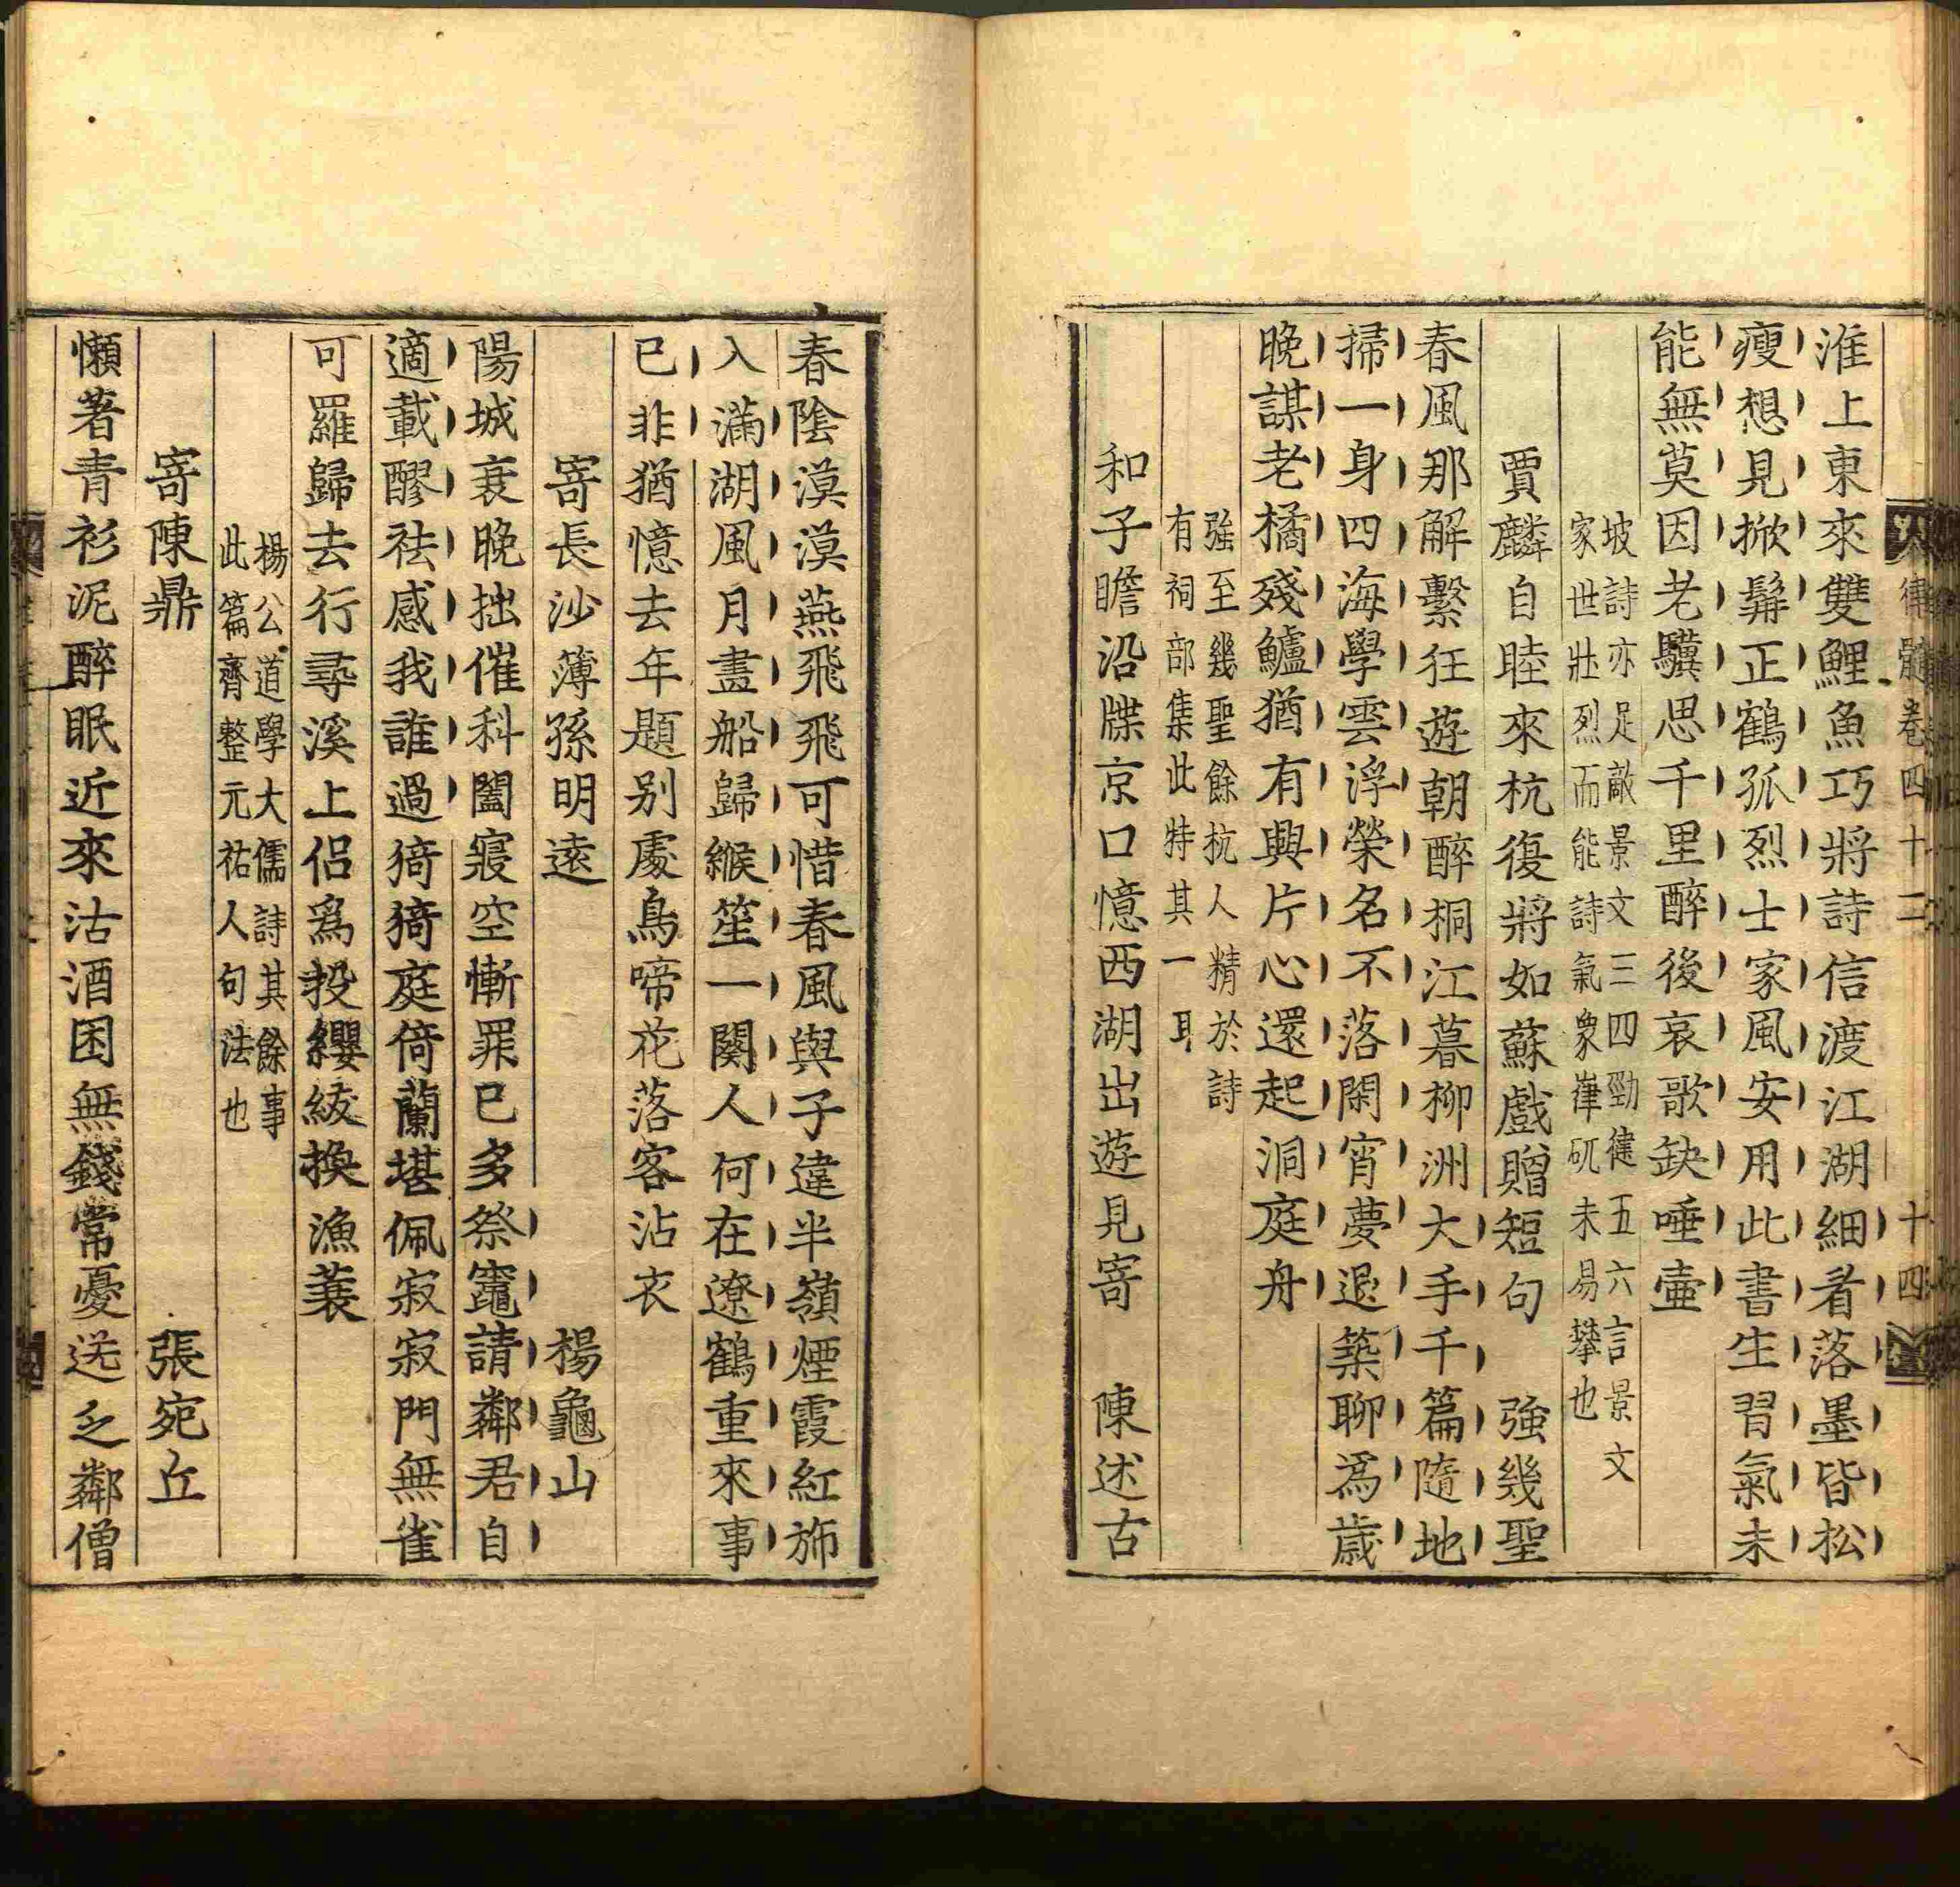 淮上東來雙鯉魚巧將詩信渡江湖細看落墨皆松
瘦想見掀髯正鶴孤烈士家風安用此書生習氣未
能無莫因老驥思千里醉後哀歌缺唾壷
坡詩亦足敵景文三四勁健五六言景文
家世壯烈而能詩氣象嵂矹未易攀也
賈麟自睦來杭復將如蘇戲贈短句　強幾聖
春風那解繫狂遊朝醉桐江暮柳洲大手千篇隨地
掃一身四海學雲浮榮名不落閑宵夢退築聊爲歲
晚謀老橘殘鱸猶有興片心還起洞庭舟
強至幾聖餘杭人精於詩
有祠部集此特其一耳
和子瞻沿牒京口憶西湖出遊見寄　陳述古
春陰漠漠燕飛飛可惜春風與子違半嶺煙霞紅斾
入滿湖風月畫船歸緱笙一闋人何在遼鶴重來事
已非猶憶去年題别處鳥啼花落客沾衣
寄長沙簿孫明遠　楊龜山
陽城衰晚拙催科闔寢空慚罪已多祭竈請鄰君自
適載醪袪感我誰過猗猗庭倚蘭堪佩寂寂門無雀
可羅歸去行尋溪上侣爲投纓紱換漁蓑
楊公道學大儒詩其餘事
此篇齊整元祐人句法也
寄陳鼎　張宛丘
懶著青衫泥醉眠近來沽酒困無錢常憂送乏鄰僧
律髓卷四十二　十四